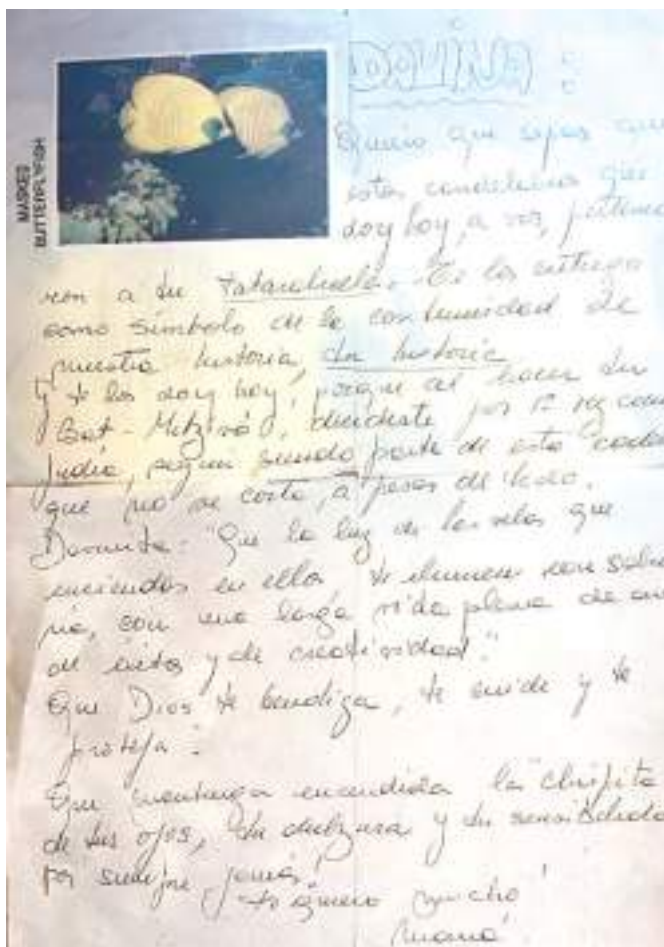 MASKED
BUTTERFLYFISH
DAVINA :
Quiero que sepas que
estos candelabros que
doy hoy, a vos, pertene
cen a tu tatarabuela. Te los entrego
como símbolo de la continuidad de
nuestra historia, tu historia
Y te los doy hoy, porque al hacer tu
Bat-Mitzvá, decidiste por 1ª vez como
judía, seguir siendo parte de esta cadena
que no se corta, a pesar de todo.
"Que la luz de las velas que
enciendas en ellos te iluminen con sabidu
ría, con una larga vida plena de
de éxitos y de creatividad."
Que Dios te bendiga, te cuide y te
proteja.
Que mantenga encendida la "chispita"
de tus ojos, tu dulzura y tu sensibilidad
por siempre jamás!
te quiero mucho!
Mamá.